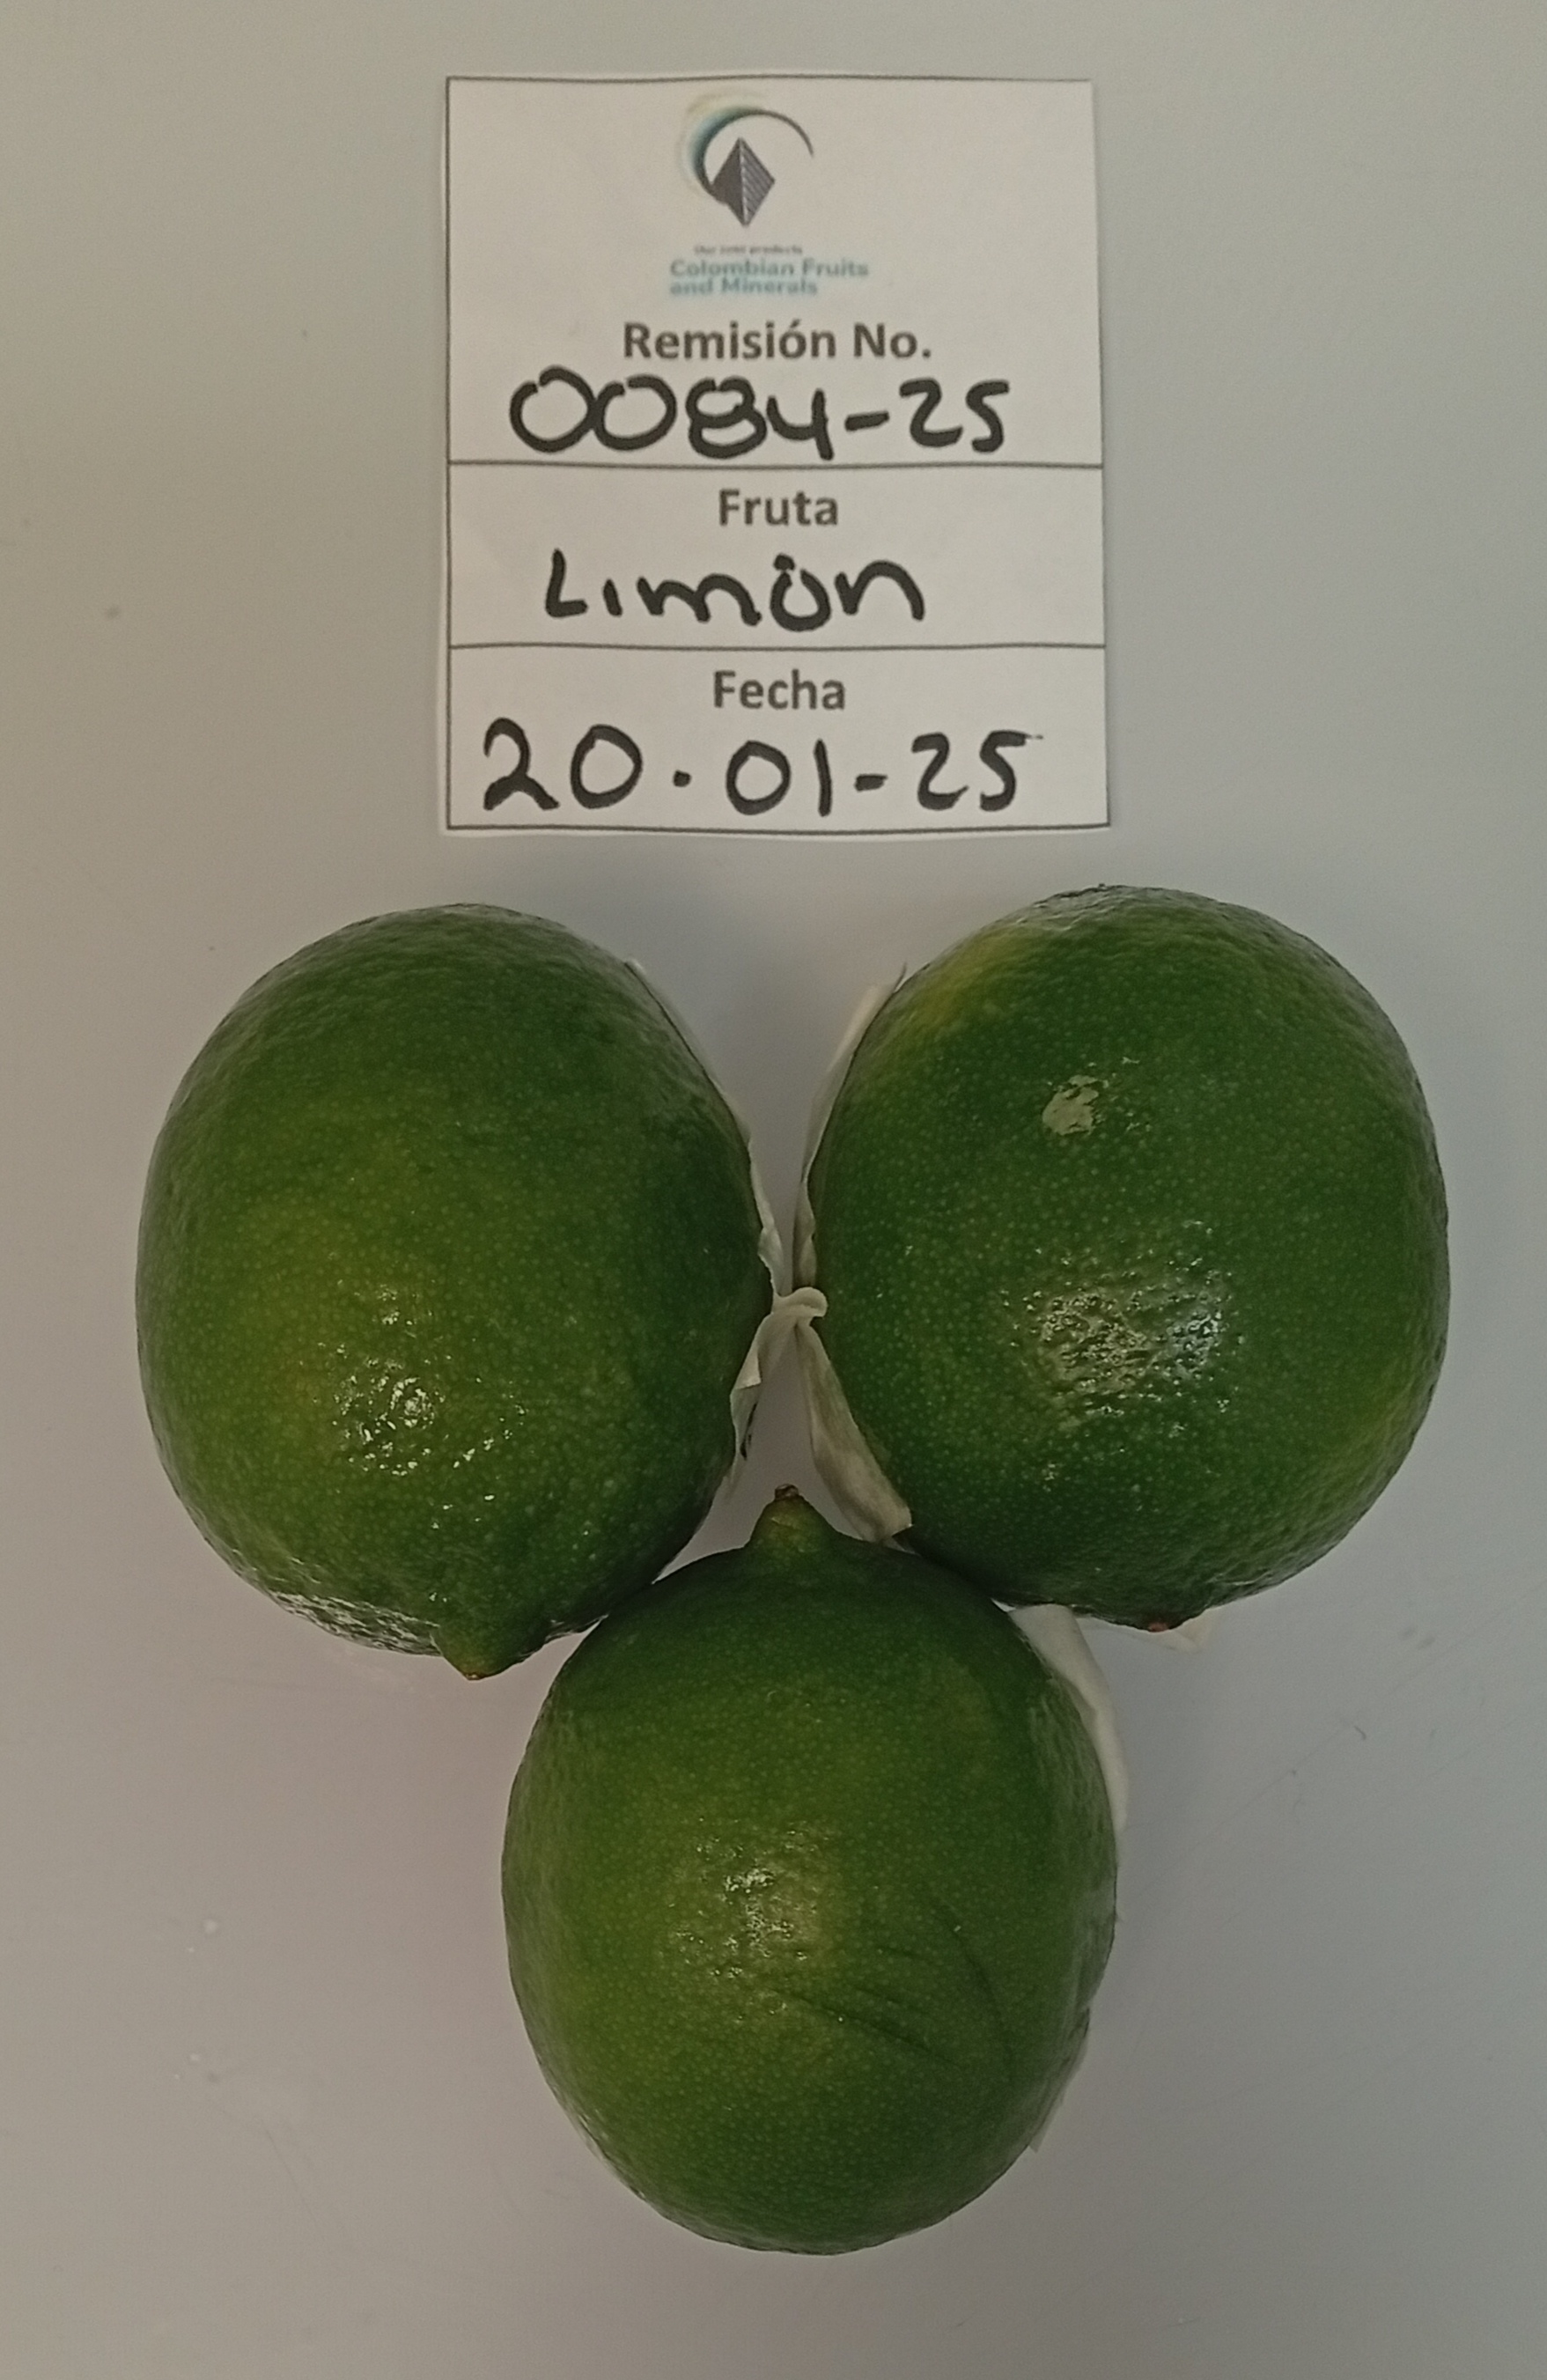 Colombian Fruits
and Minerals
Remisión No.
0084-25
Fruta
Limón
Fecha
20-01-25